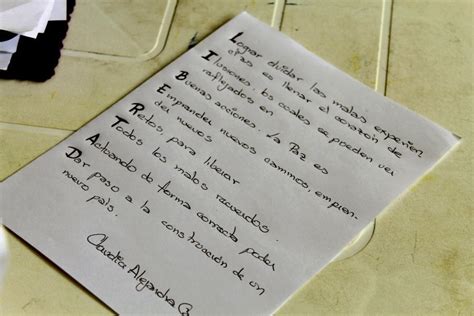 Lograr olvidar las malas experien
cias es llenar el corazón de
Ilusiones. los cuales se pueden ver
reflejados en
Buenas acciones. La Paz es
Emprender nuevos caminos, empren-
der nuevos
Retos, para liberar
Todos los malos recuerdos.
Actuando de forma correcta poder
Dar paso a la construcción de un
nuevo país.
Claudia Alejandra